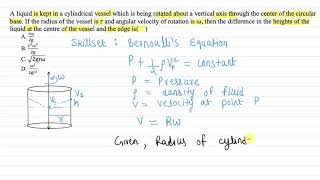 A liquid is kept in a cylindrical vessel which is being rotated about a vertical axis through the center of the circular
base. If the radius of the vessel is r and angular velocity of rotation is ω, then the difference in the heights of the
liquid at the centre of the vessel and the edge is( )
A. rω/2g
B. r²ω²/2g
C. √2grω
D. ω²/2gr²
Skillset : Bernoulli's Equation
P + 1/2 ρV² = constant
P = Pressure
ρ = density of fluid
V = velocity at point P
V = Rω
Given, Radius of cylind
ω
Vc
Vs
h
r